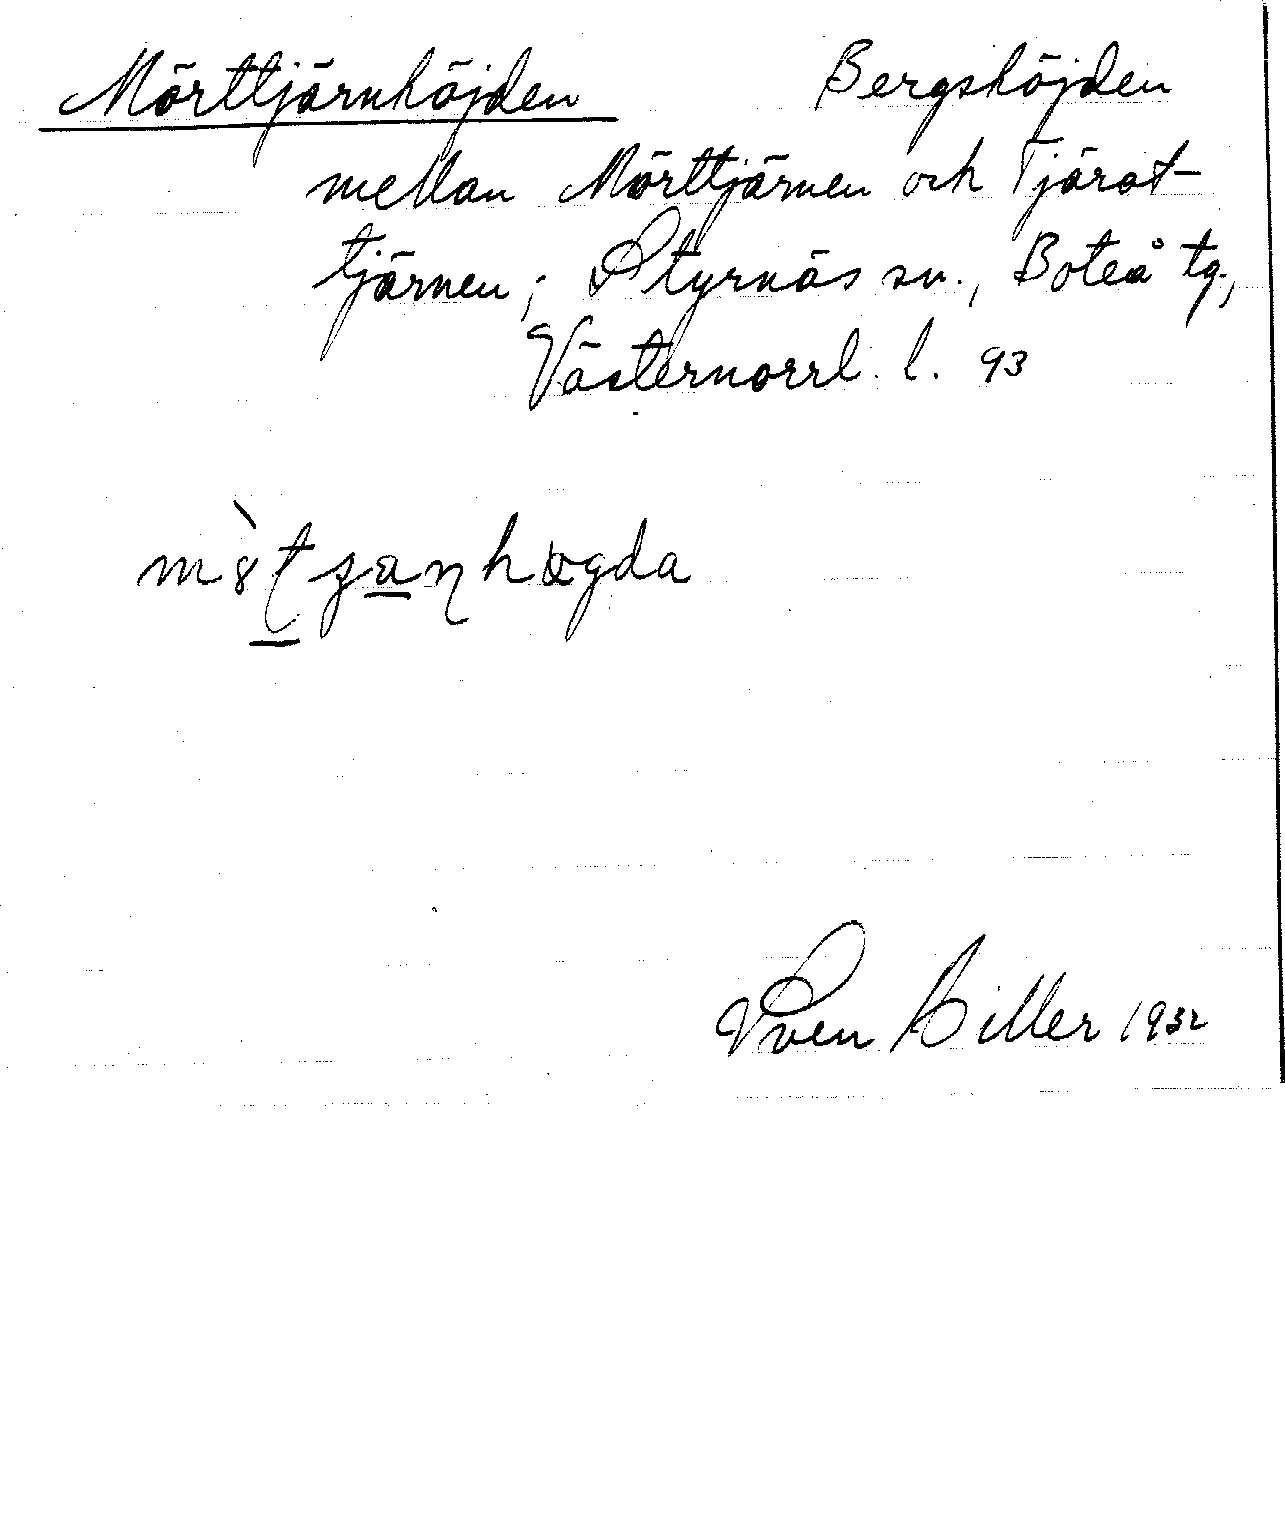 Mörttjärnhöjden Bergshöjden
mellan Mörttjärnen och Tjärot-
tjärnen; Styrnäs sn., Boteå tg.,
Västernorrl. l. 93
Sven Hiller 1932